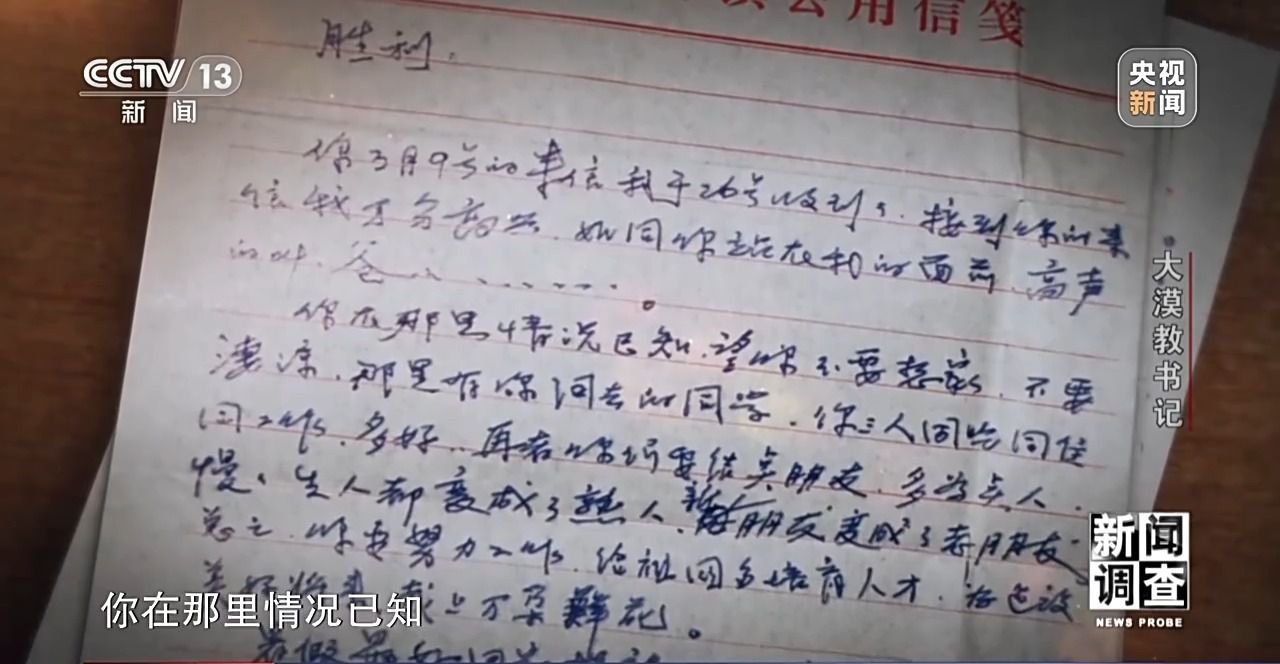 公用信笺
CCTV 13
新闻
央视
新闻
胜利.
你3月9号的来信我于26号收到了.接到你的来
信我万分高兴.如同你站在我的面前.高声
的叫.爸、、......。
你在那里情况已知.望你不要想家.不要
凄凉.那里有你同去的同学.你三人同吃同住
同工作.多好.再者你们要结点朋友.多为点人.
慢、生人都变成了熟人.新朋友变成了老朋友.
总之.你要努力工作.给祖国多培育人才.为建设
美好将来献上万朵鲜花。
大漠教书记
新闻
调查
NEWS PROBE
你在那里情况已知